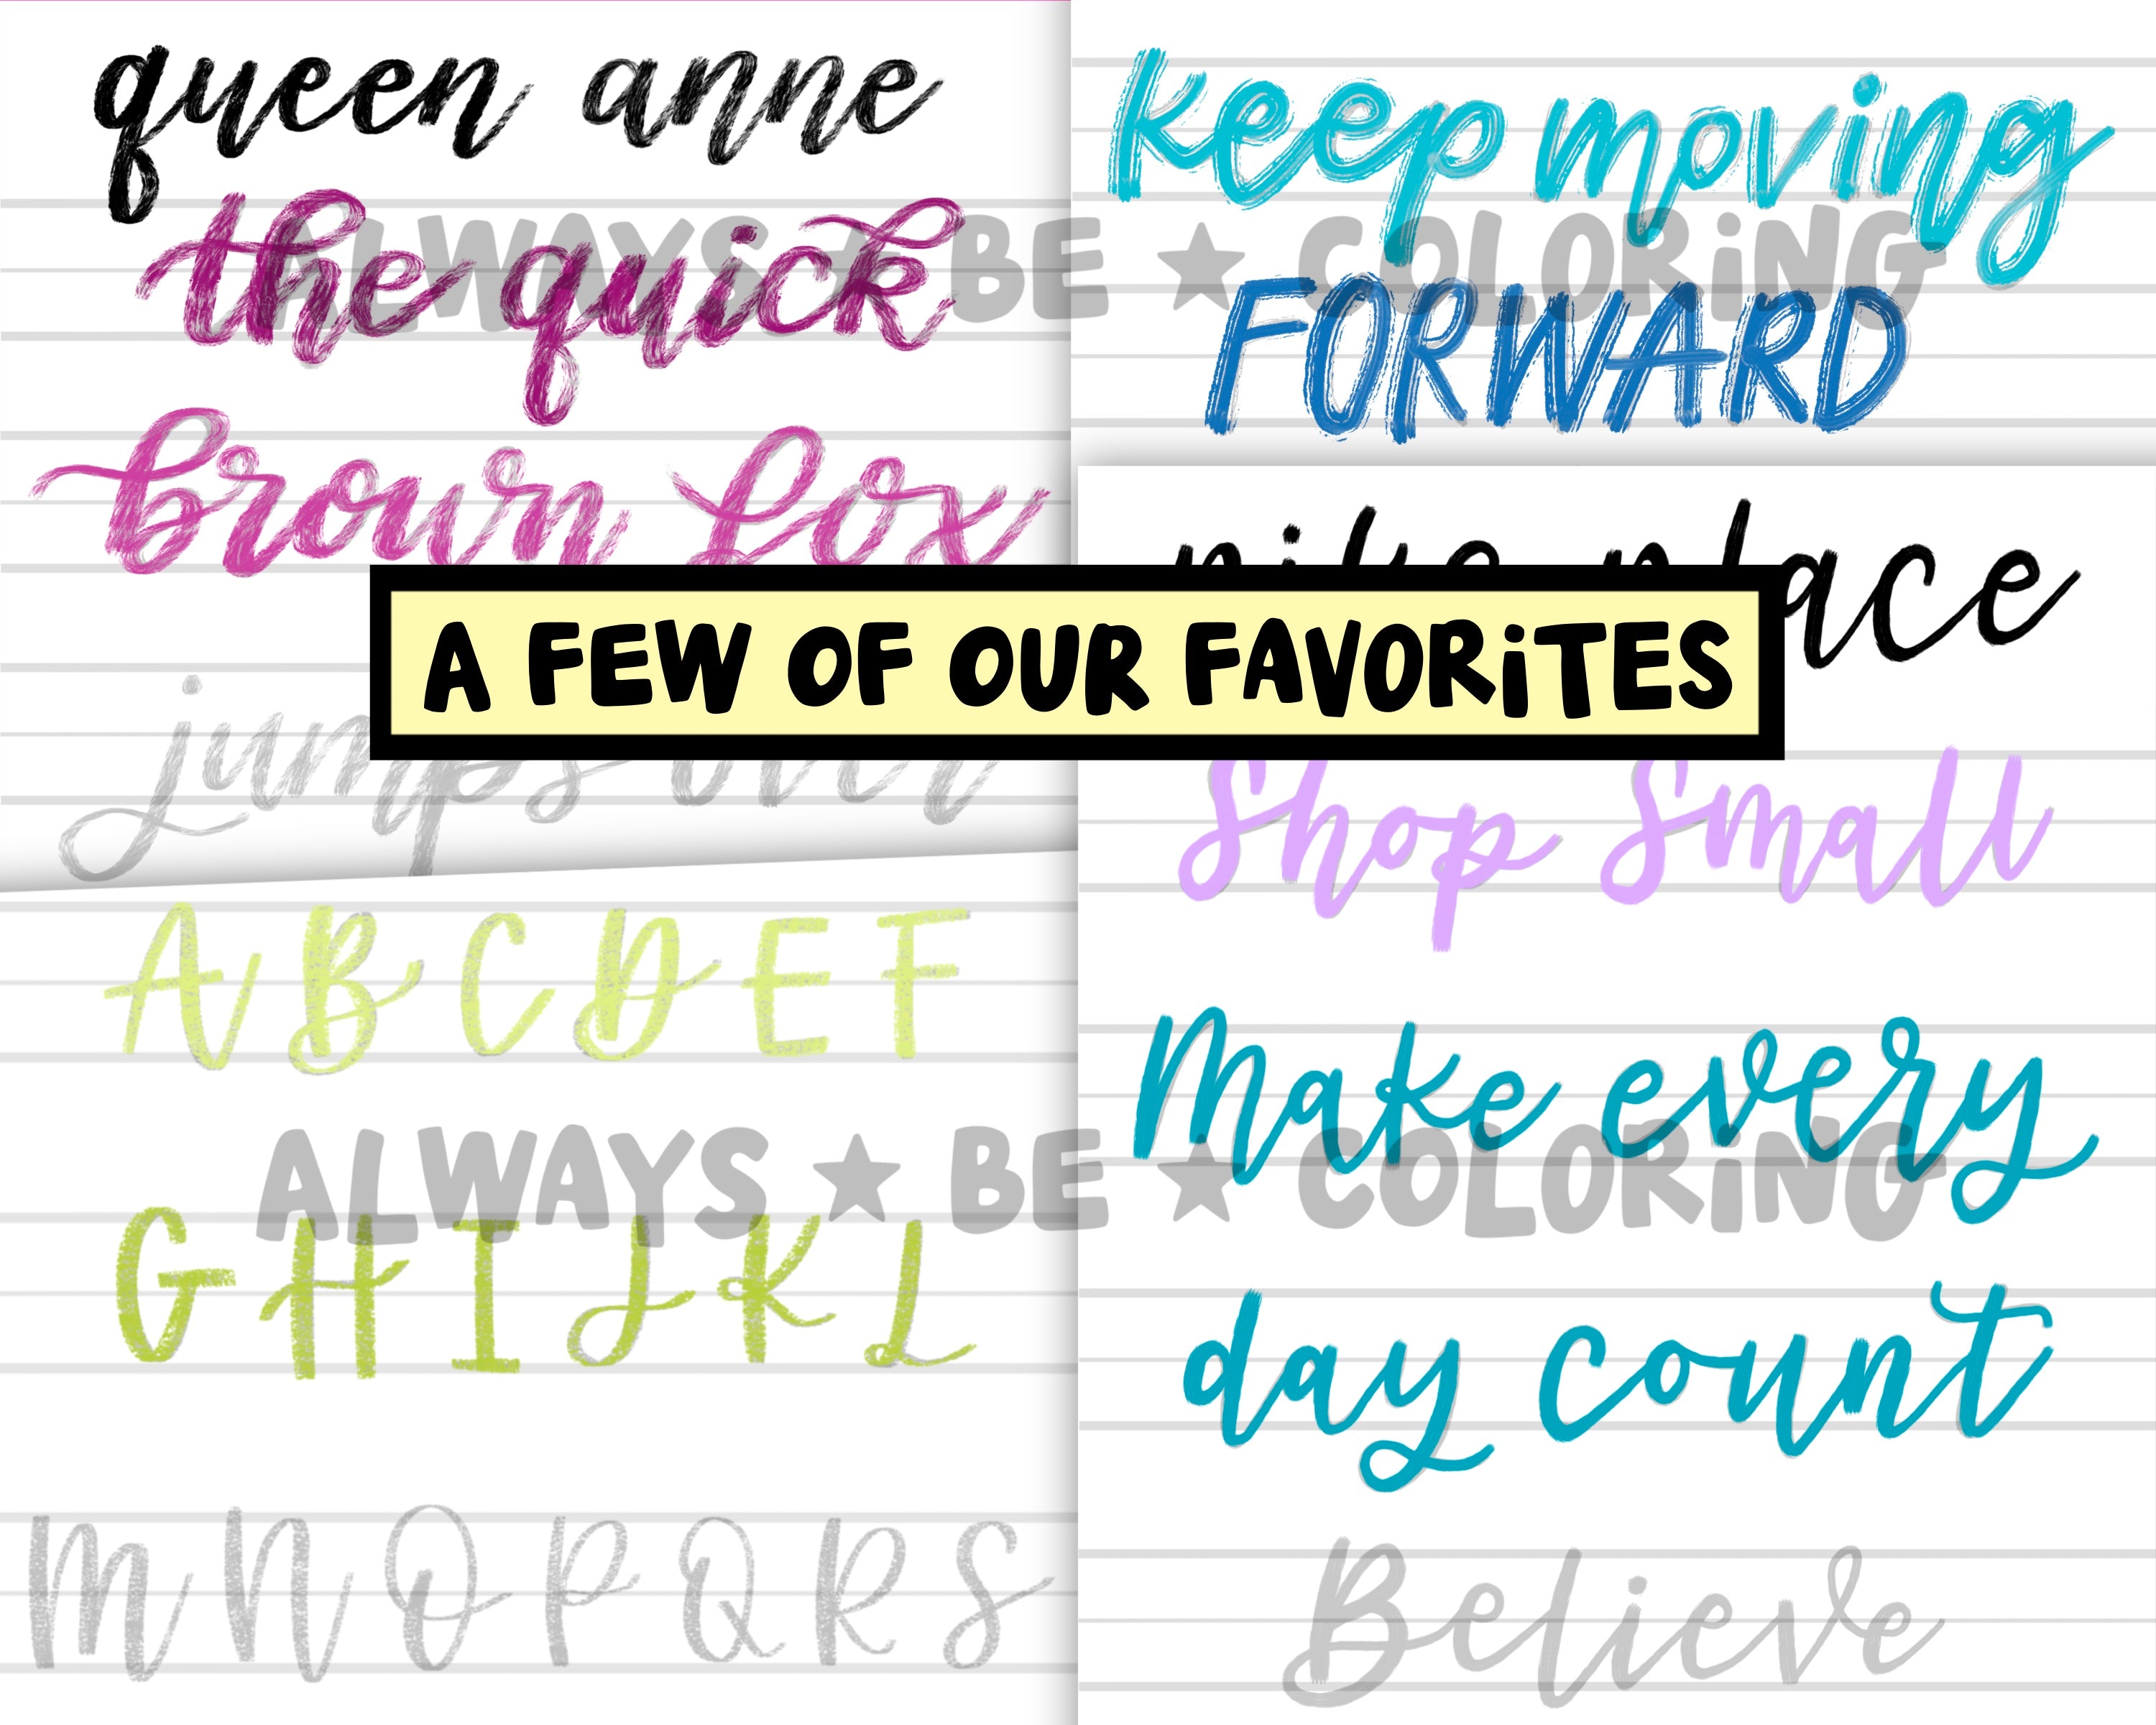 queen anne
the quick
brown fox
jumps over
keep moving
FORWARD
ALWAYS ★ BE ★ COLORiNG
A FEW OF OUR FAVORiTES
pike place
Shop Small
Make every
day count
Believe
A B C D E F
ALWAYS ★ BE ★ COLORiNG
G H I J K L
M N O P Q R S